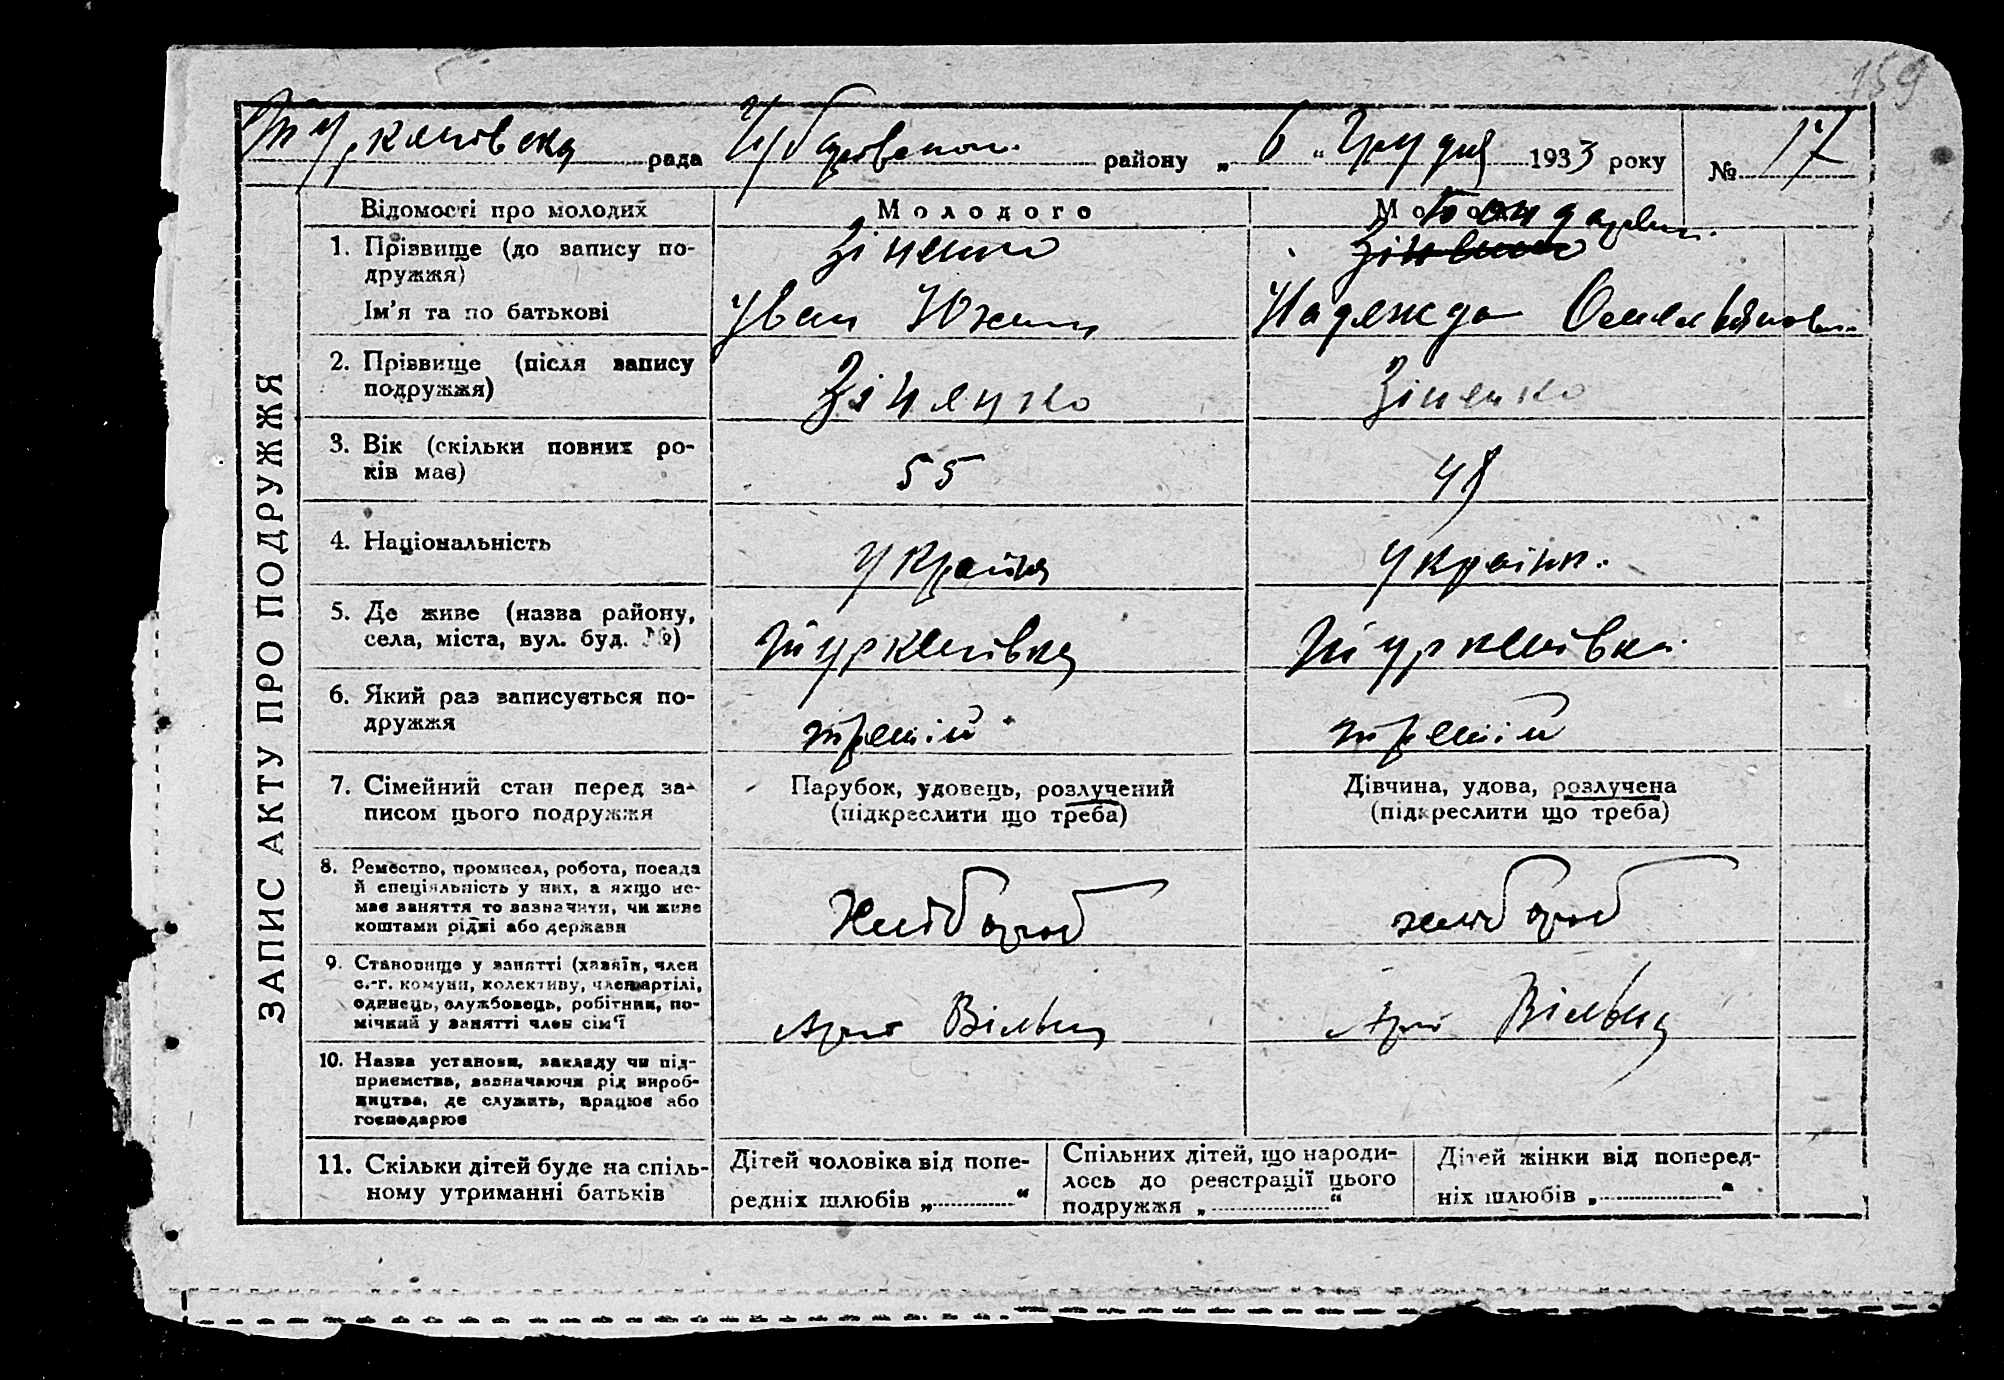 159
рада району „ 6 “ Грудня 1933 року № 17
ЗАПИС АКТУ ПРО ПОДРУЖЖЯ
Відомості про молодих
Молодого
1. Прізвище (до запису по-
дружжя)
Зіненко
Ім'я та по батькові
Іван
Надежда
2. Прізвище (після запису
подружжя)
Зіненко
Зіненко
3. Вік (скільки повних ро-
ків має)
55
48
4. Національність
Україн.
5. Де живе (назва району,
села, міста, вул. буд. №)
6. Який раз записується по-
дружжя
третій
третій
7. Сімейний стан перед за-
писом цього подружжя
Парубок, удовець, розлучений
(підкреслити що треба)
Дівчина, удова, розлучена
(підкреслити що треба)
8. Ремество, промисел, робота, посада
й спеціяльність у них, а якщо не-
має заняття то зазначити, чи живе
коштами рідні або держави
Хлібороб
хлібороб
9. Становище у занятті (хазяїн, член
с.-г. комуни, колективу, член артілі,
одинець, службовець, робітник, по-
мічний у занятті член сім'ї
10. Назва установи, закладу чи під-
приємства, зазначаючи рід вироб-
ництва, де служить, працює або
господарює
11. Скільки дітей буде на спіль-
ному утриманні батьків
Дітей чоловіка від попе-
редніх шлюбів „ “
Спільних дітей, що народи-
лось до реєстрації цього
подружжя „ “
Дітей жінки від поперед-
ніх шлюбів „ “